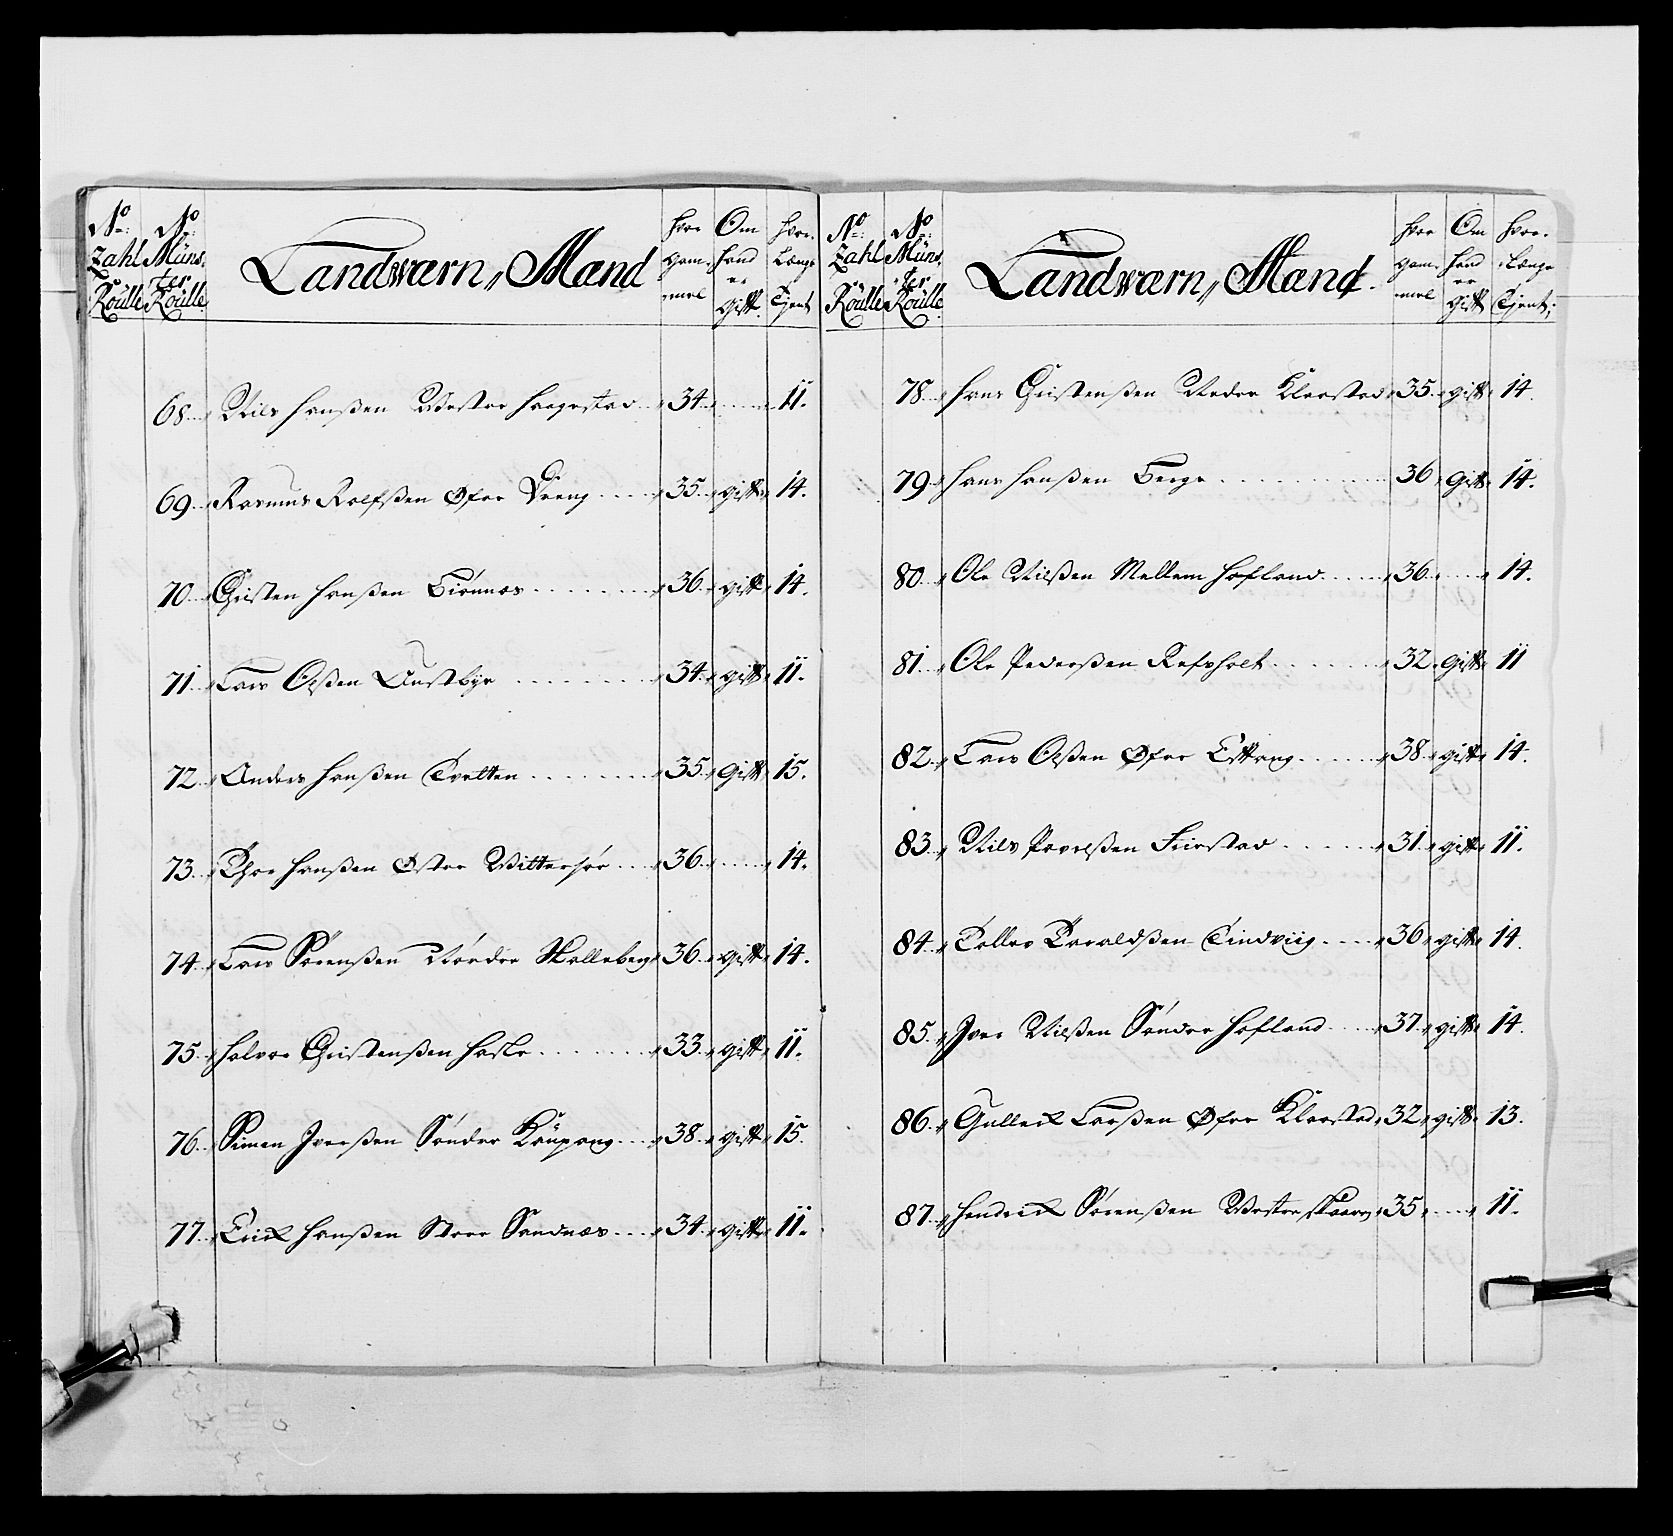 No: Zahl Roulle
No: Münster Roulle
Landværn,, Mænd
hvor gammel
Om hand er gift
hvor Længe Tjent
68. Nils Hanßen Vester Haagestad 34. 11.
69. Rasmus Rolfßen Øfre Vreng 35. gift 14.
70. Christen Hanßen Tiønnæs 36. gift 14.
71. Lars Olßen Austbye 34. gift 11.
72. Anders Hanßen Tvetten 35. Gift 15.
73. Thor Hanßen Øster Vittersøe 36. 14.
74. Lars Sørenßen Nordre Skalleberg 36. gift 14.
75. Halvor Christenßen Haske 33. gift 11.
76. Simen Iverßen Søndre Kaupang 38. gift 15.
77. Erick Hanßen Store Sandnæs 34. gift 11.
No: Zahl Roulle
No: Münster Roulle
Landværn,, Mænd.
hvor gammel
Om hand er gift
hvor Længe Tjent:
78. Hans Christenßen Nedre Klaastad 35. gift 14.
79. Hans Hanßen Berge 36 Gift 14.
80. Ole Nilßen Mellem Hafland 36. 14.
81. Ole Pederßen Refsholt 32. Gift 11
82. Lars Olßen Øfre Eftang 38. gift 14.
83. Nils Povelßen Fuestad 31. gift 11.
84. Tollev Taraldßen Tindviig 36. gift 14.
85. Iver Nilßen Søndre Hafland 37. gift 14.
86. Gulleck Larßen Øfre Klaastad 32. gift 13.
87. Hendrick Sørenßen Vester 35. 11.